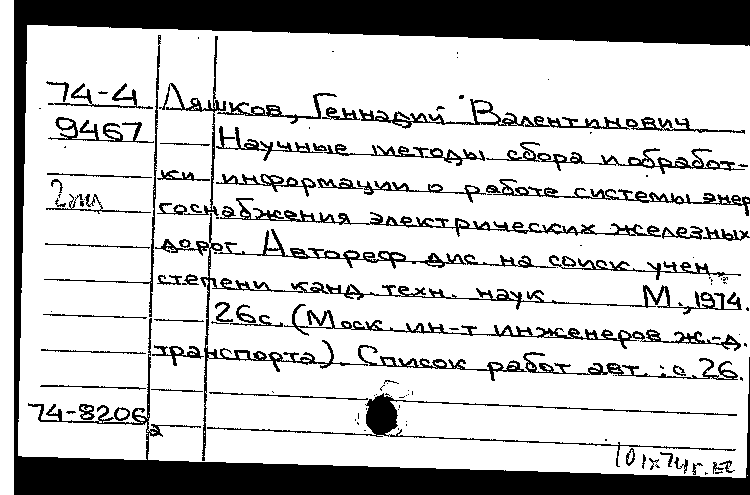 74-4 Ляшков, Геннадий Валентинович
9467 Научные методы сбора и обработ-
ки информации о работе системы энер
2
госнабжения электрических железных
дорог. Автореф. дис. на соиск. учен.
степени канд. техн. наук. М., 1974.
26с. (Моск. ин-т инженеров ж.-д.
транспорта). Список работ авт.: с. 26.
74-8206
101x74г.